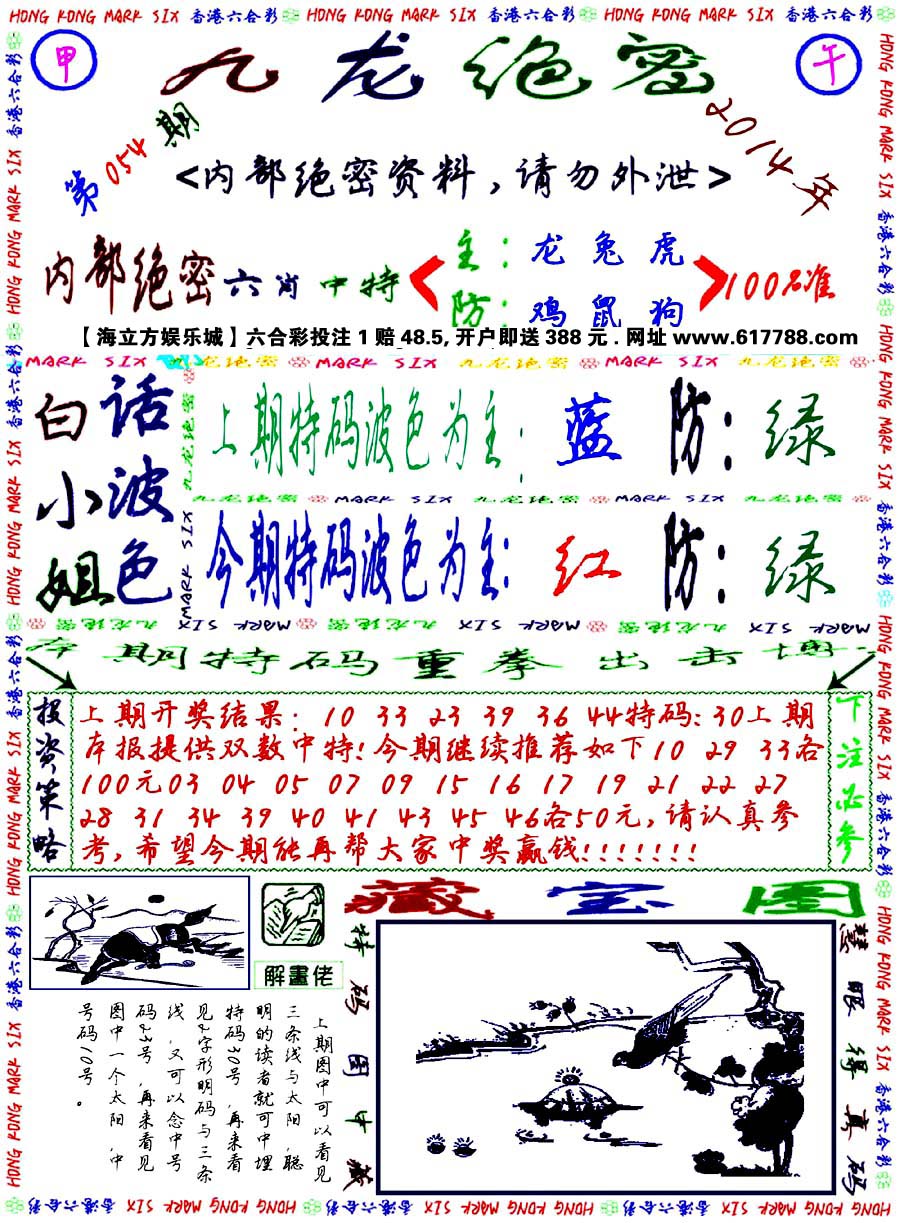 HONG KONG MARK SIX 香港六合彩 HONG KONG MARK SIX 香港六合彩 HONG KONG MARK SIX 香港六合彩
甲
九龙绝密
午
第054期
2014年
<内部绝密资料,请勿外泄>
内部绝密六肖中特
主:龙兔虎
防:鸡鼠狗
100%准
【海立方娱乐城】六合彩投注1赔48.5,开户即送388元.网址www.617788.com
MARK SIX 九龙绝密 MARK SIX 九龙绝密 MARK SIX 九龙绝密
白话小波姐色
上期特码波色为主:蓝 防:绿
九龙绝密 MARK SIX 九龙绝密 MARK SIX 九龙绝密
今期特码波色为主:红 防:绿
MARK SIX 九龙绝密 MARK SIX 九龙绝密 MARK SIX 九龙绝密 MARK SIX
本期特码重拳出击博
投资策略
上期开奖结果:10 33 23 39 36 44特码:30上期
本报提供双数中特!今期继续推荐如下10 29 33各
100元03 04 05 07 09 15 16 17 19 21 22 27
28 31 34 39 40 41 43 45 46各50元,请认真参
考,希望今期能再帮大家中奖赢钱!!!!!!!
下注必参
解畫佬
藏宝图
特码图中藏
慧眼得真码
上期图中可以看见
三条线与太阳,聪
明的读者就可中埋
特码30号,再来看
见2字形明码与三条
线,又可以念中号
码23号,再来看见
图中一个太阳,中
号码10号。
HONG KONG MARK SIX 香港六合彩 HONG KONG MARK SIX 香港六合彩 HONG KONG MARK SIX 香港六合彩